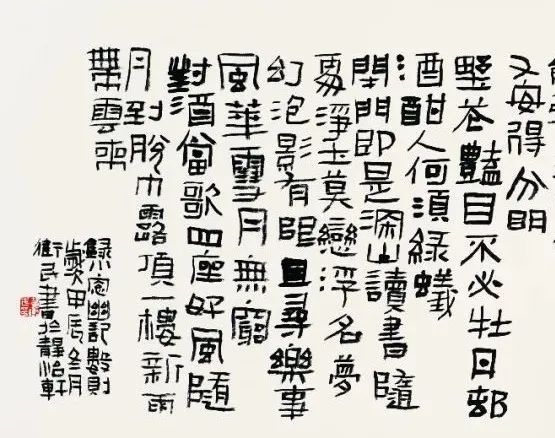 又安得分明
野花豔目不必牡丹邨
酒酣人何須綠蟻
閉門即是深山讀書隨
處淨土莫戀浮名夢
幻泡影有限且尋樂事
風華雪月無窮
對酒當歌四座好風隨
月到脫巾露頂一樓新雨
帶雲來
錄小窗幽記數則
歲次甲辰冬月
衛民書於靜怡軒